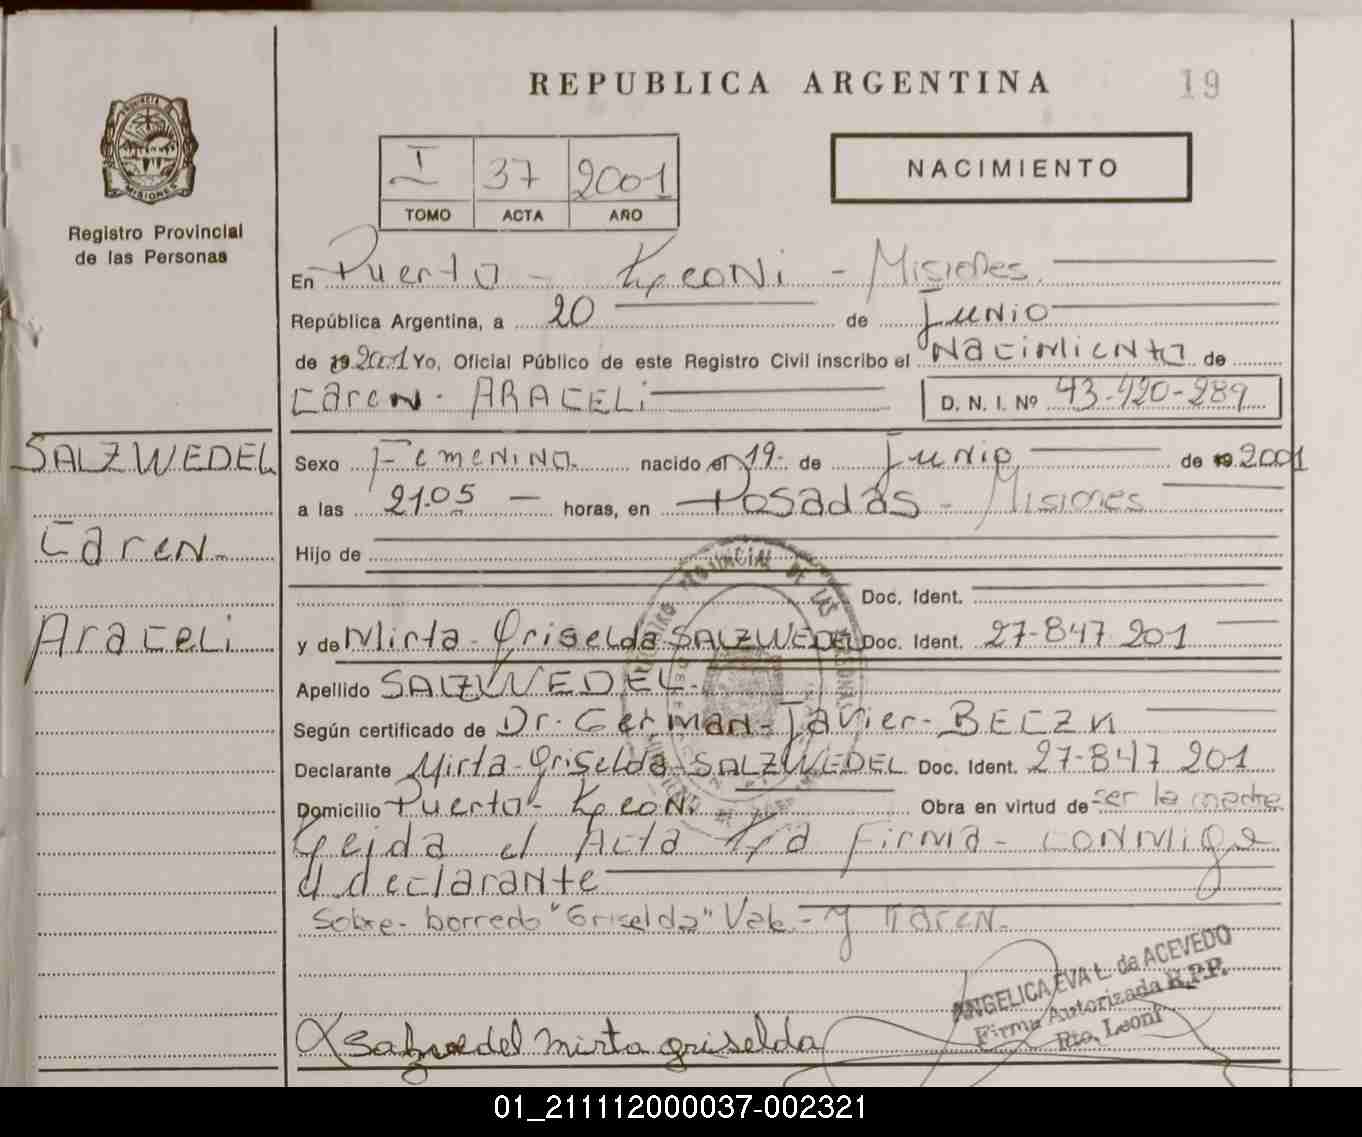 REPUBLICA ARGENTINA
19
PROVINCIA DE
MISIONES
Registro Provincial
de las Personas
I 37 2001
TOMO ACTA AÑO
NACIMIENTO
En Puerto - Leoni - Misiones.
República Argentina, a 20 de Junio
de 2001 Yo, Oficial Público de este Registro Civil inscribo el Nacimiento de
Caren - ARACELi
D. N. I. Nº 43-420-289
SALZWEDEL
Caren
Araceli
Sexo Femenino. nacido el 19 de Junio de 2001
a las 21.05 horas, en Posadas - Misiones
Hijo de
Doc. Ident.
y de Mirta - Griselda SALZWEDEL Doc. Ident. 27-847 201
Apellido SALZWEDEL.
Según certificado de Dr. German - Javier - BECZN
Declarante Mirta - Griselda - SALZWEDEL Doc. Ident. 27-847 201
Domicilio Puerto - Leoni Obra en virtud de ser la madre
Leida el Acta La firma - conmigo
el declarante
Sobre-borrado "Griselda" Vale - y Karen.
Salzwedel mirta griselda
ANGELICA EVA L. de ACEVEDO
Firma Autorizada R.P.P.
Pto. Leoni
01_211112000037-002321